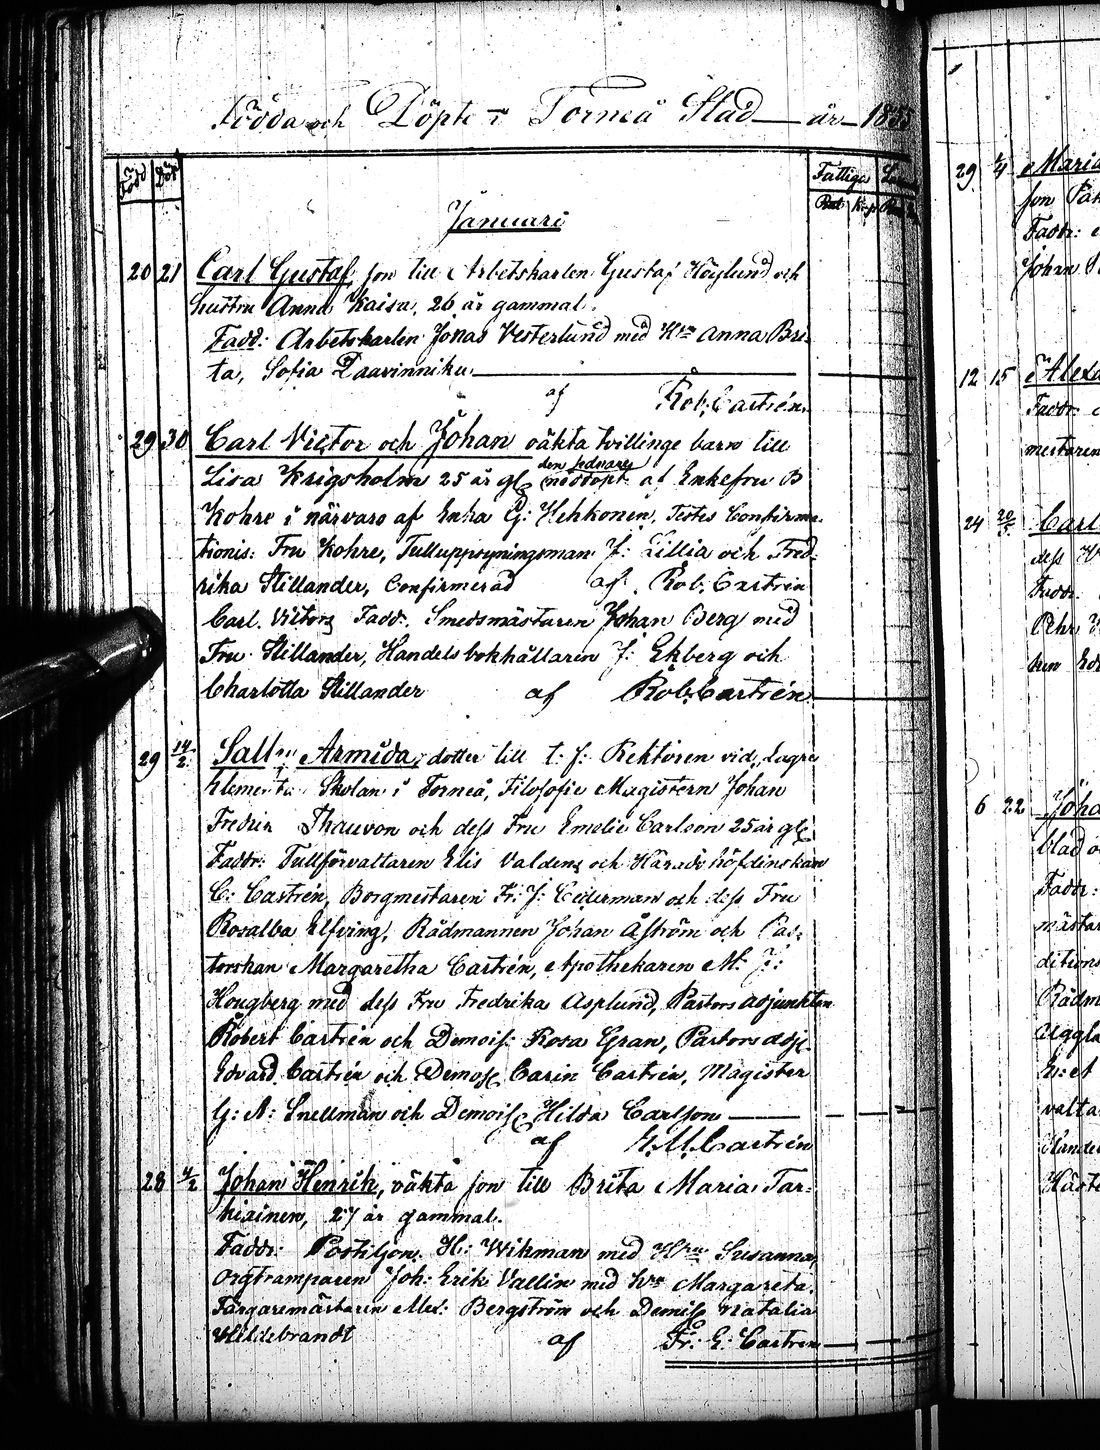 Födda och Döpte i Torneå Stad år 1855
Född Döpt Fattige
Rub. Kop
Januari
20 21 Carl Gustaf, son till Arbetskarlen Gustaf Höglund och
hustru Anna Kaisa, 26 år gammal.
Fadd: Arbetskarlen Jonas Vesterlund med H:u Anna Bri-
ta, Sofia Laavinniku
af Rob. Castrén
29 30 Carl Victor och Johan oäkta tvillinge barn till
Lisa Krigsholm 25 år gl, den sednare nöddöpt af Enkefru B
Kohre i närvaro af Enka G: Hehkonen, Testes Confirma-
tionis: Fru Kohre, Tulluppsyningsman J: Lillia och Fred-
rika Stillander, Confirmerad af Rob. Castrén
Carl Victors Fadd. Smedsmästaren Johan Berg med
Fru Stillander, Handelsbokhållaren J: Ekberg och
Charlotta Stillander af Rob. Castrén
29 14/2 Armida, dotter till t. f. Rektoren vid Lägre
Elementar Skolan i Torneå, Filosofie Magistern Johan
Fredrik Thauvon och dess Fru Emelie Carlson 25 år gl
Faddr: Tullförvaltaren Elis Valdens och Häradshöfdinskan
C: Castrén, Borgmestaren Fr: J: Cederman och dess Fru
Rosalba Elfving, Rådmannen Johan Åström och Pas-
torskan Margaretha Castrén, Apothekaren M. J:
Hougberg med dess Fru Fredrika Asplund, Pastors adjunkten
Robert Castrén och Demois: Rosa Gran, Pastors adj.
Edvard Castrén och Demos Carin Castrén, Magister
G: A: Snellman och Demois Hilda Carlson
af Castrén
28 4/2 Johan Henrik, oäkta son till Brita Maria Tar-
kiainen, 27 år gammal.
Faddr: Postiljon H: Wikman med H:ru Susanna,
Orgtramparen Joh: Erik Vallin med h:u Margareta.
Färgaremästaren Alex: Bergström och Demis Natalia
Hildebrandt af Fr: E: Castrén
29 4 Maria
son
Faddr:
Johan
12 15 Alexa
Faddr:
mestaren
24 20/5 Carl
dess
Faddr.
Pehr
6 22 Joha
blad
Faddr:
mästar
ditions
Rådm
Uggla
valta
Handel